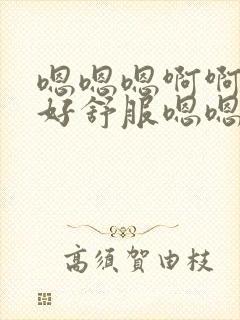 嗯嗯嗯啊啊
好舒服嗯嗯
高須賀由枝